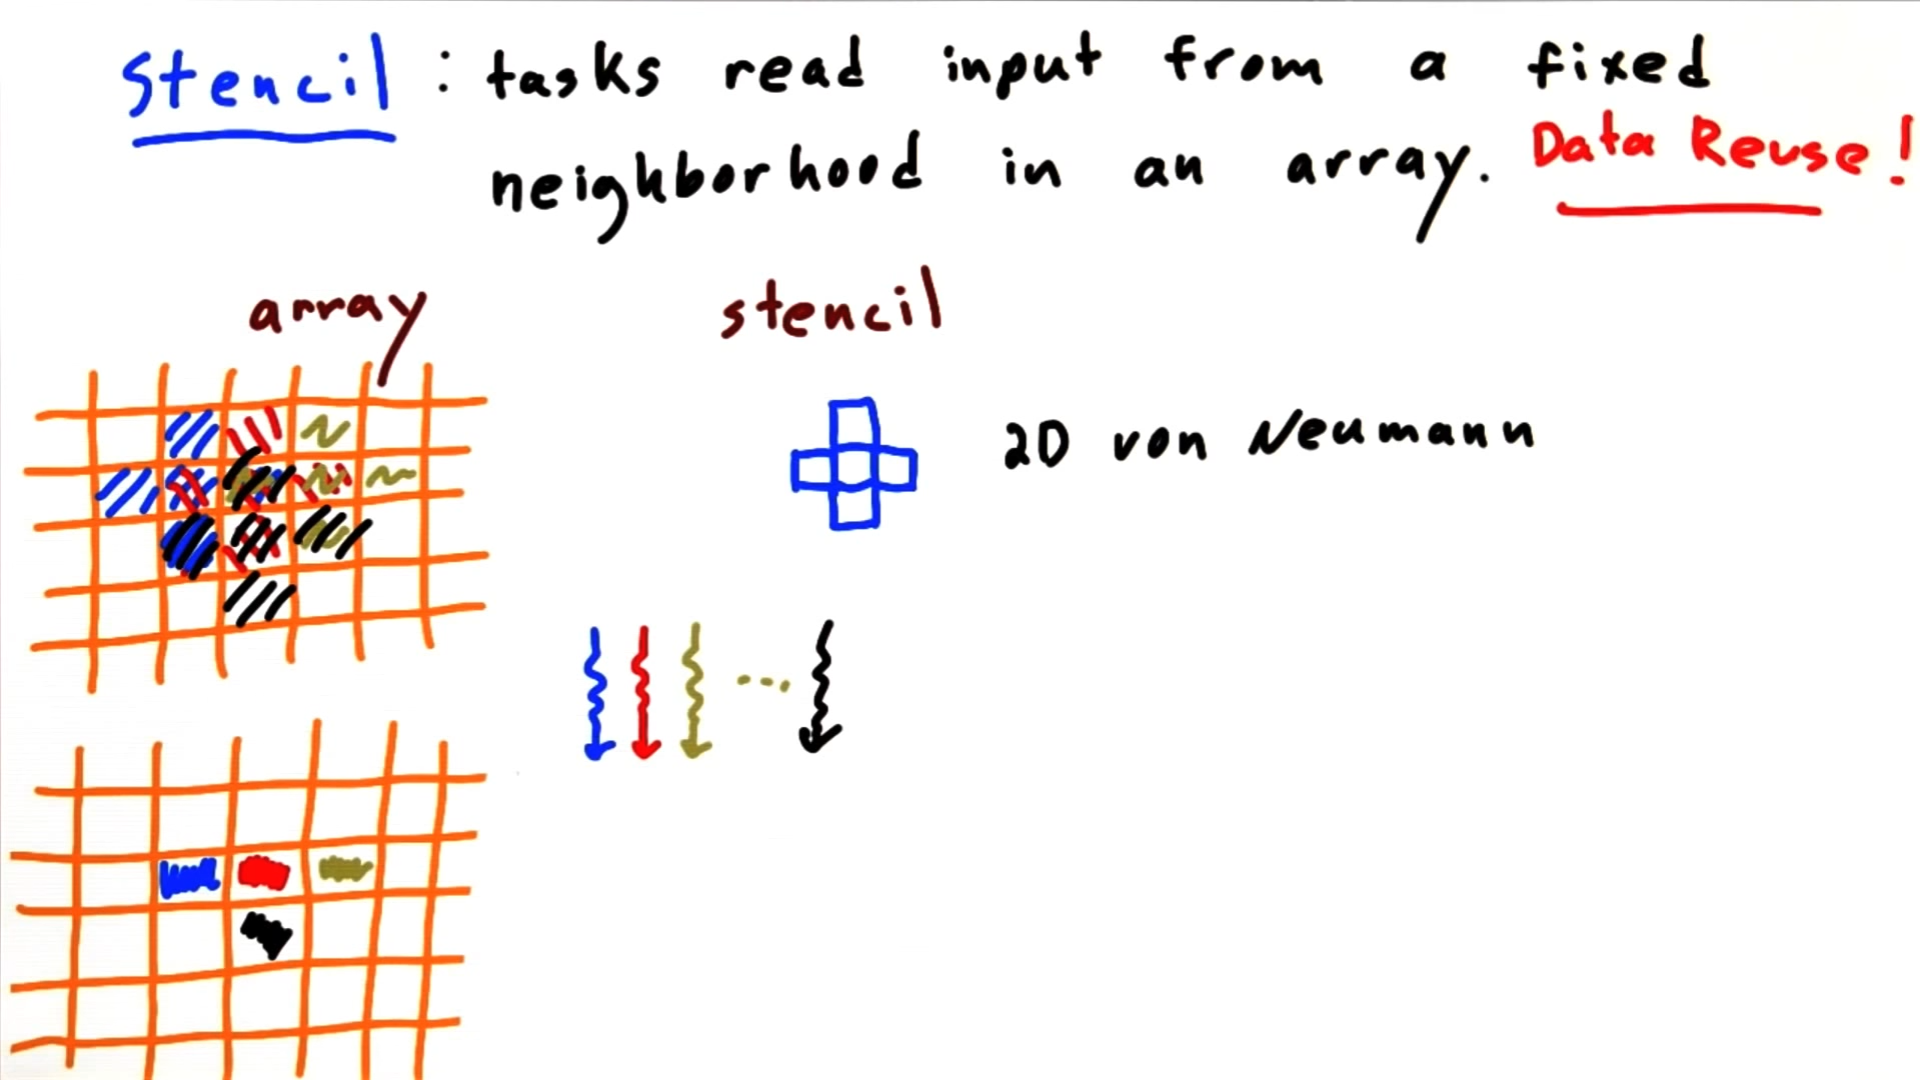 stencil : tasks read input from a fixed
neighborhood in an array. Data Reuse!
array
stencil
2D von Neumann
...